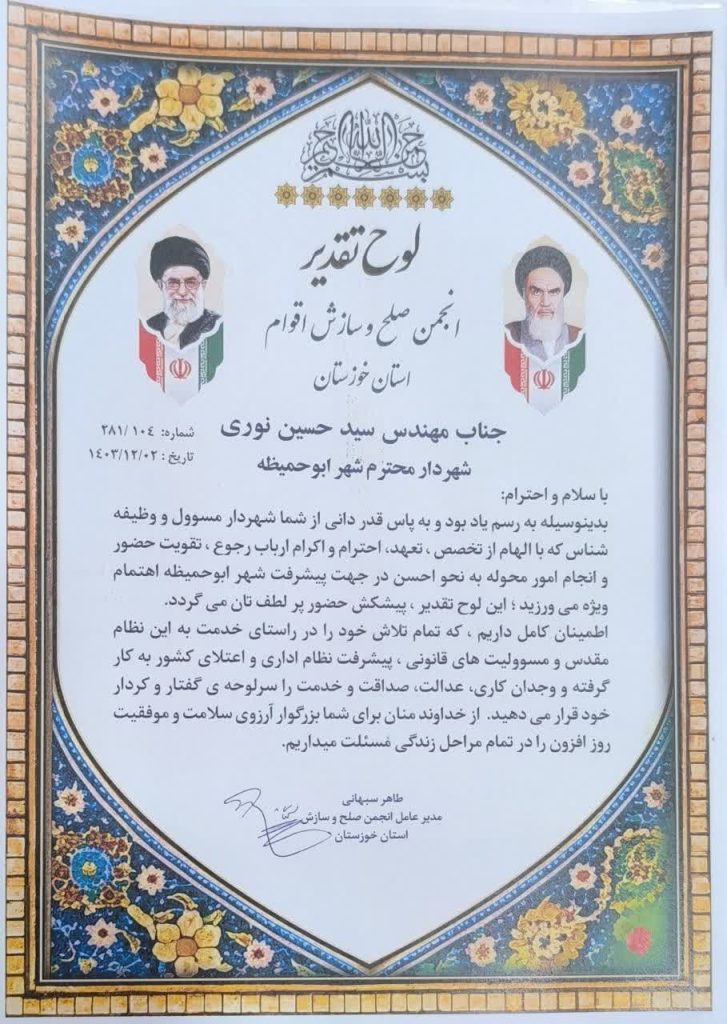 بسم الله الرحمن الرحیم
لوح تقدیر
انجمن صلح و سازش اقوام
استان خوزستان
جناب مهندس سید حسین نوری
شماره: ۲۸۱/۱۰۴
شهردار محترم شهر ابوحمیظه
تاریخ: ۱۴۰۳/۱۲/۰۲
با سلام و احترام:
بدینوسیله به رسم یاد بود و به پاس قدر دانی از شما شهردار مسوول و وظیفه
شناس که با الهام از تخصص ، تعهد، احترام و اکرام ارباب رجوع ، تقویت حضور
و انجام امور محوله به نحو احسن در جهت پیشرفت شهر ابوحمیظه اهتمام
ویژه می ورزید ؛ این لوح تقدیر ، پیشکش حضور پر لطف تان می گردد.
اطمینان کامل داریم ، که تمام تلاش خود را در راستای خدمت به این نظام
مقدس و مسوولیت های قانونی ، پیشرفت نظام اداری و اعتلای کشور به کار
گرفته و وجدان کاری، عدالت، صداقت و خدمت را سرلوحه ی گفتار و کردار
خود قرار می دهید. از خداوند منان برای شما بزرگوار آرزوی سلامت و موفقیت
روز افزون را در تمام مراحل زندگی مُسئلت میداریم.
طاهر سبهانی
مدیر عامل انجمن صلح و سازش
استان خوزستان